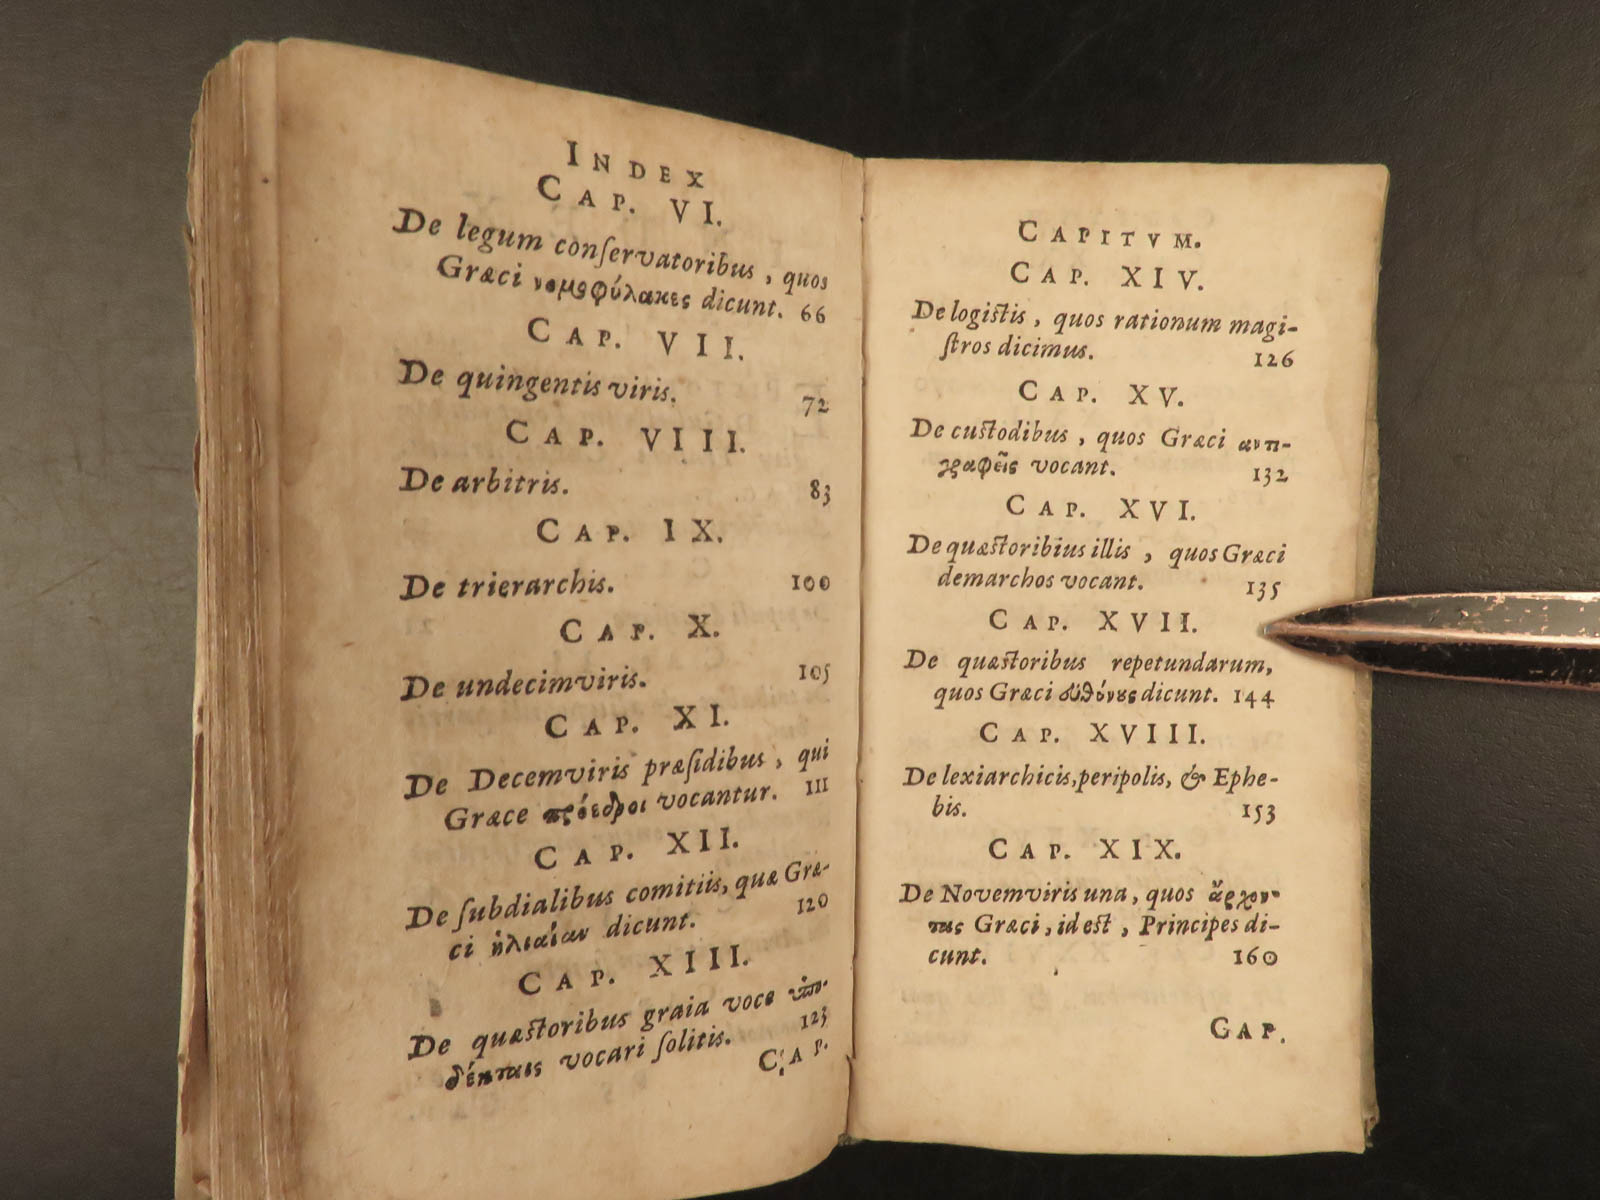 INDEX
CAP. VI.
De legum conſervatoribus, quos
Græci νομοφύλακες dicunt. 66
CAP. VII.
De quingentis viris. 72
CAP. VIII.
De arbitris. 83
CAP. IX.
De trierarchis. 100
CAP. X.
De undecimviris. 105
CAP. XI.
De Decemviris præſidibus, qui
Græce πρόεδροι vocantur. 111
CAP. XII.
De ſubdialibus comitiis, quæ Græ-
ci ἡλιαίαν dicunt. 120
CAP. XIII.
De quæstoribus graia voce ἀπο-
δέκταις vocari ſolitis. 123
CAP.
CAPITVM.
CAP. XIV.
De logistis, quos rationum magi-
ſtros dicimus. 126
CAP. XV.
De custodibus, quos Græci αντι-
γραφεῖς vocant. 132
CAP. XVI.
De quæstoribius illis, quos Græci
demarchos vocant. 135
CAP. XVII.
De quæstoribus repetundarum,
quos Græci εὐθύνους dicunt. 144
CAP. XVIII.
De lexiarchicis, peripolis, & Ephe-
bis. 153
CAP. XIX.
De Novemviris una, quos ἄρχον-
τας Græci, id est, Principes di-
cunt. 160
CAP.